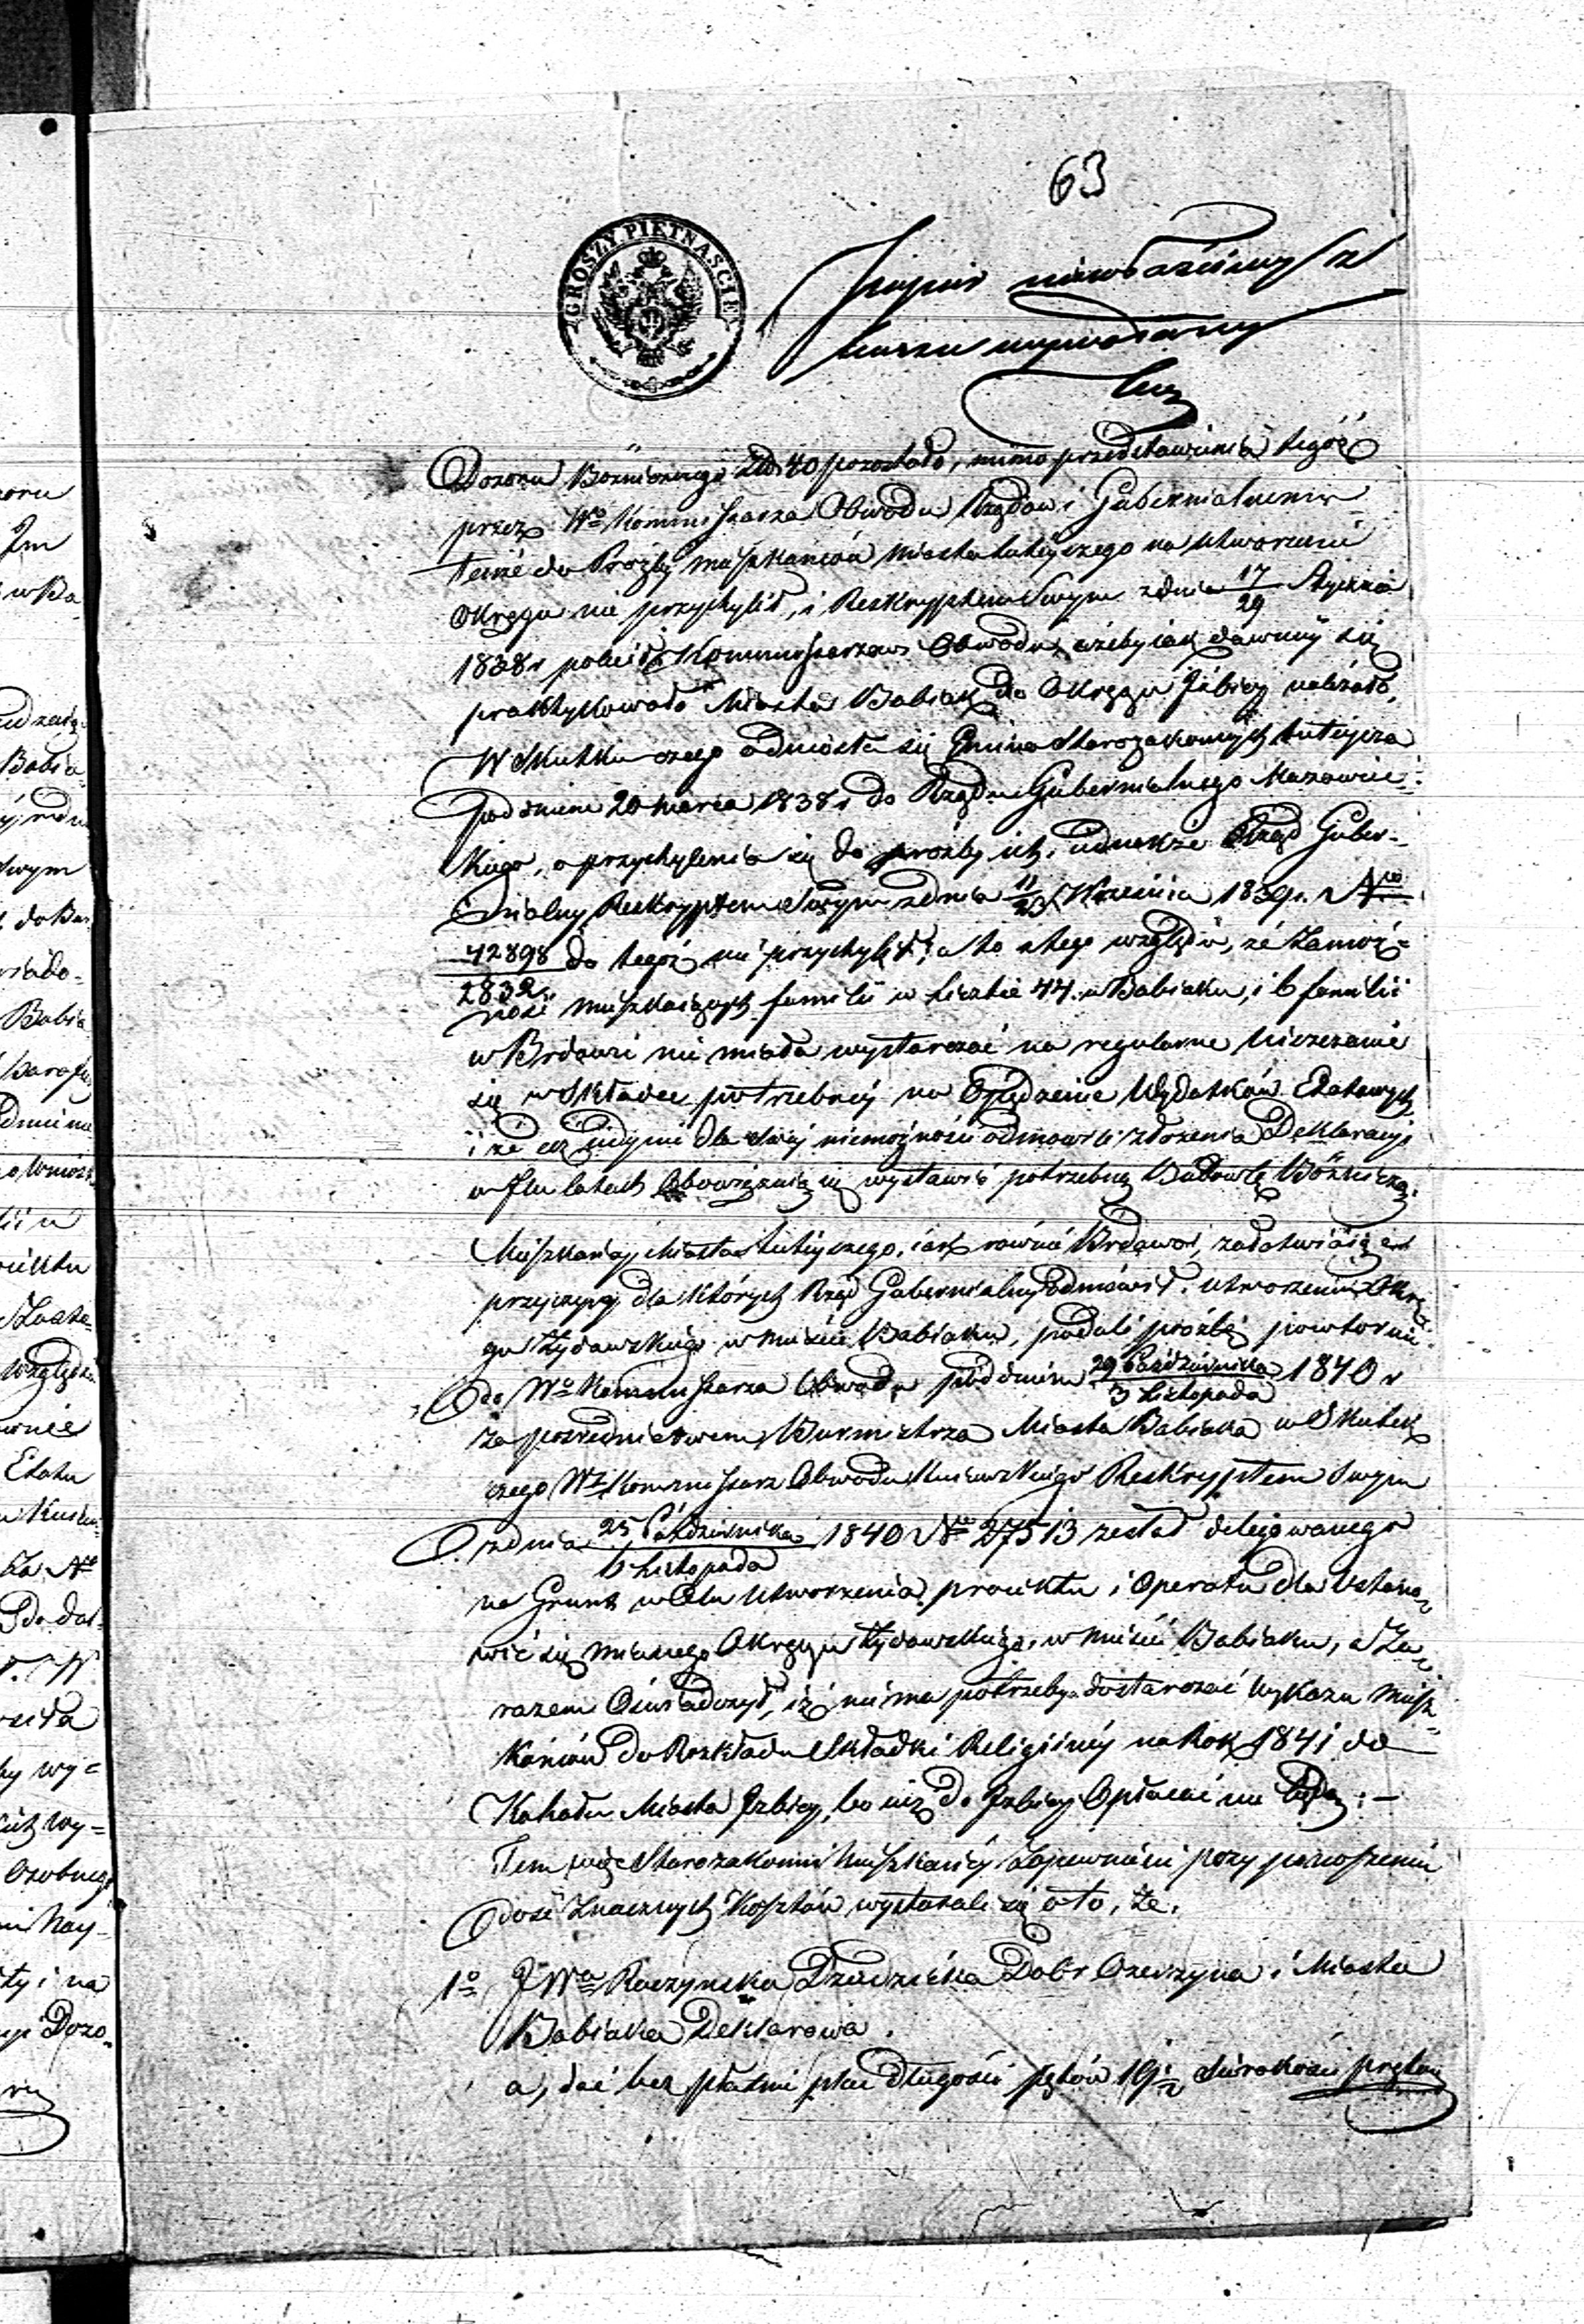 63
GROSZY PIĘTNAŚCIE
papier niewłaściwy z
braku
Dozoru Bożniczego Złp 40 pozostało, mimo przedstawienia tegoż
przez Wo Kommissarza Obwodu Rządowi Gubernialnemu
tenże do Proźby mieszkańców miasta tutejszego na utworzenie
Okręgu nie przychylił, i Reskryptem Swym z dnia 17/29 Stycznia
1838 r polecił Kommissarzowi Obwodu, ażeby iak dawniej się
praktykowało Miasto Babiak do Okręgu Izbicy należało,
W Skutku czego odniosła się Gmina Starozakonnych tutejsza
pod dniem 20 Marca 1838 r do Rządu Gubernialnego Mazowiec-
kiego, o przychylenie się do proźby ich, iednakże Rząd Guber-
nialny Reskryptem Swym z dnia 11/23 Września 1839 r. No
42898/2832 do tegoż nie przychylił, a to z tego względu, że Zamoż-
ność mieszkaiących familii w Liczbie 44 w Babiaku, i 6 familii
w Brdowie nie miała wystarczać na regularne Uiszczanie
się w Składce potrzebnej na Opędzenie Wydatków Etatowych
i że ciż dla swej niemożności odmówili złożenia Deklaracyi
w latach Obowiązuią się wystawić potrzebną Budowlę Bóżniczą.
Mieszkańcy Miasta tutejszego, iak równie Brdowa, załatwiaiąc
przyczyny dla których Rząd Gubernialny odmówił utworzenia Okrę-
gu Żydowskiego w mieście Babiaku, podali proźbę powtornie
do Wo Kommissarza Obwodu pod dniem 29 Października/3 Listopada 1840 r
za pośrednictwem Burmistrza Miasta Babiaka w Skutek
czego Wy Kommissarz Obwodu Reskryptem Swym
z dnia 25 Października/6 Listopada 1840 No 27513 zesłał delegowanego
na Grunt w Celu utworzenia proiektu i Operatu dla Ustano-
wić się maiącego Okręgu Żydowskiego w mieście Babiaku, a Za-
razem Oświadczył, iż niema potrzeby dostarczać Wykazu Miesz-
kańców do Rozkładu Składki Religijnej na Rok 1841 do
Kahału Miasta Izbicy, bo iuż do Izbicy Opłacać nie będą: —
Tem więc Starozakonni Mieszkańcy Zapewnieni przy ponoszeniu
dość Znacznych Kosztów wystarali się o to, że.
1o JWa Raczyńska Dziedziczka Dobr Ozorzyna i Miasta
Babiaka Deklarowa.
a, dać bezpłatnie plac długości prętów 19 1/2 Szerokości prętów